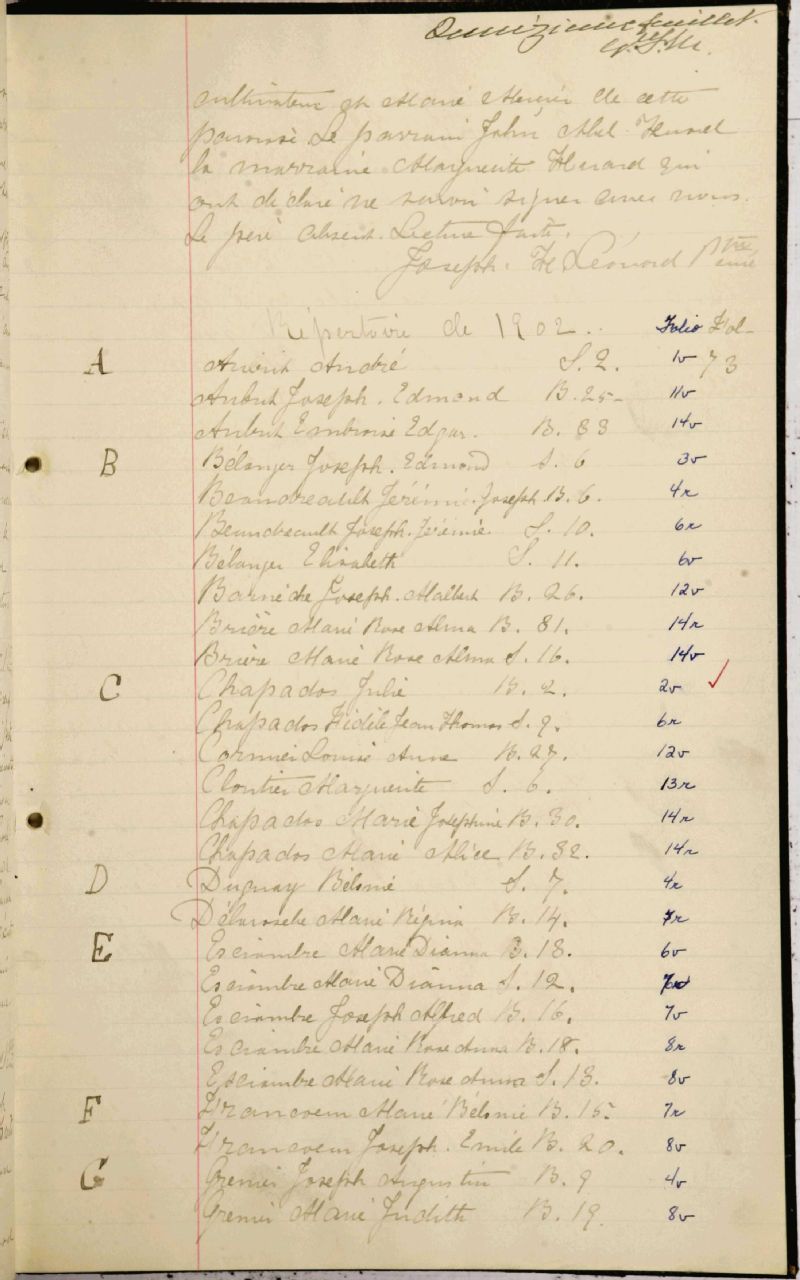 Quinzième feuillet.
cultivateur et Marie Mercier de cette
paroisse Le parrain John Abel Huard
la marraine Marguerite Huard qui
ont déclaré ne savoir signer avec nous.
Le père absent. Lecture faite.
Joseph. H Léonard Ptre curé
Répertoire de 1902. Folio Fol-
A Aubut André S. 2. 1v 73
Aubut Joseph. Edmond B. 25- 11v
Aubut Embroise Edgar. B. 33 14v
B Bélanger Joseph. Edmond S. 6 3v
Beaudreault Jérémie. Joseph B. 6. 4r
Beaudreault Joseph. Jérémie S. 10. 6r
Bélanger Elisabeth S. 11. 6v
Joseph. Malbert B. 26. 12v
Brière Marie Rose Alma B. 31. 14r
Brière Marie Rose Alma S. 16. 14v
C Chapados Julie B. 2. 2v
Chapados Fidèle Jean Thomas S. 9. 6r
Cormier Louise Anne B. 27. 12v
Cloutier Marguerite S. 6. 13r
Chapados Marie Joséphine B. 30. 14r
Chapados Marie Alice B. 32. 14r
D Duguay Bélonie S. 7. 4r
Délarosebe Marie Régina B. 14. 7r
E Esciambre Marie Dianna B. 13. 6v
Esciambre Marie Dianna S. 12.
Esciambre Joseph Alfred B. 16. 7v
Esciambre Marie Rose Anna B. 18. 8r
Esciambre Marie Rose Anna S. 13. 8v
F Francoeur Marie Bélonie B. 15. 7r
Francoeur Joseph. Emile B. 20. 8v
G Grenier Joseph Augustin B. 9 4v
Grenier Marie Judith B. 19. 8v